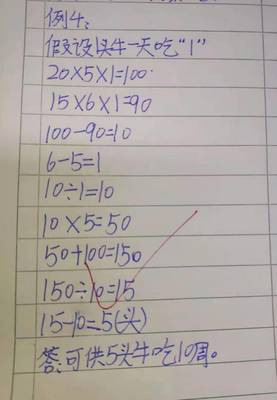 例4:
假设1头牛一天吃"1"
20×5×1=100
15×6×1=90
100-90=10
6-5=1
10÷1=10
10×5=50
50+100=150
150÷10=15
15-10=5(头)
答:可供5头牛吃10周。